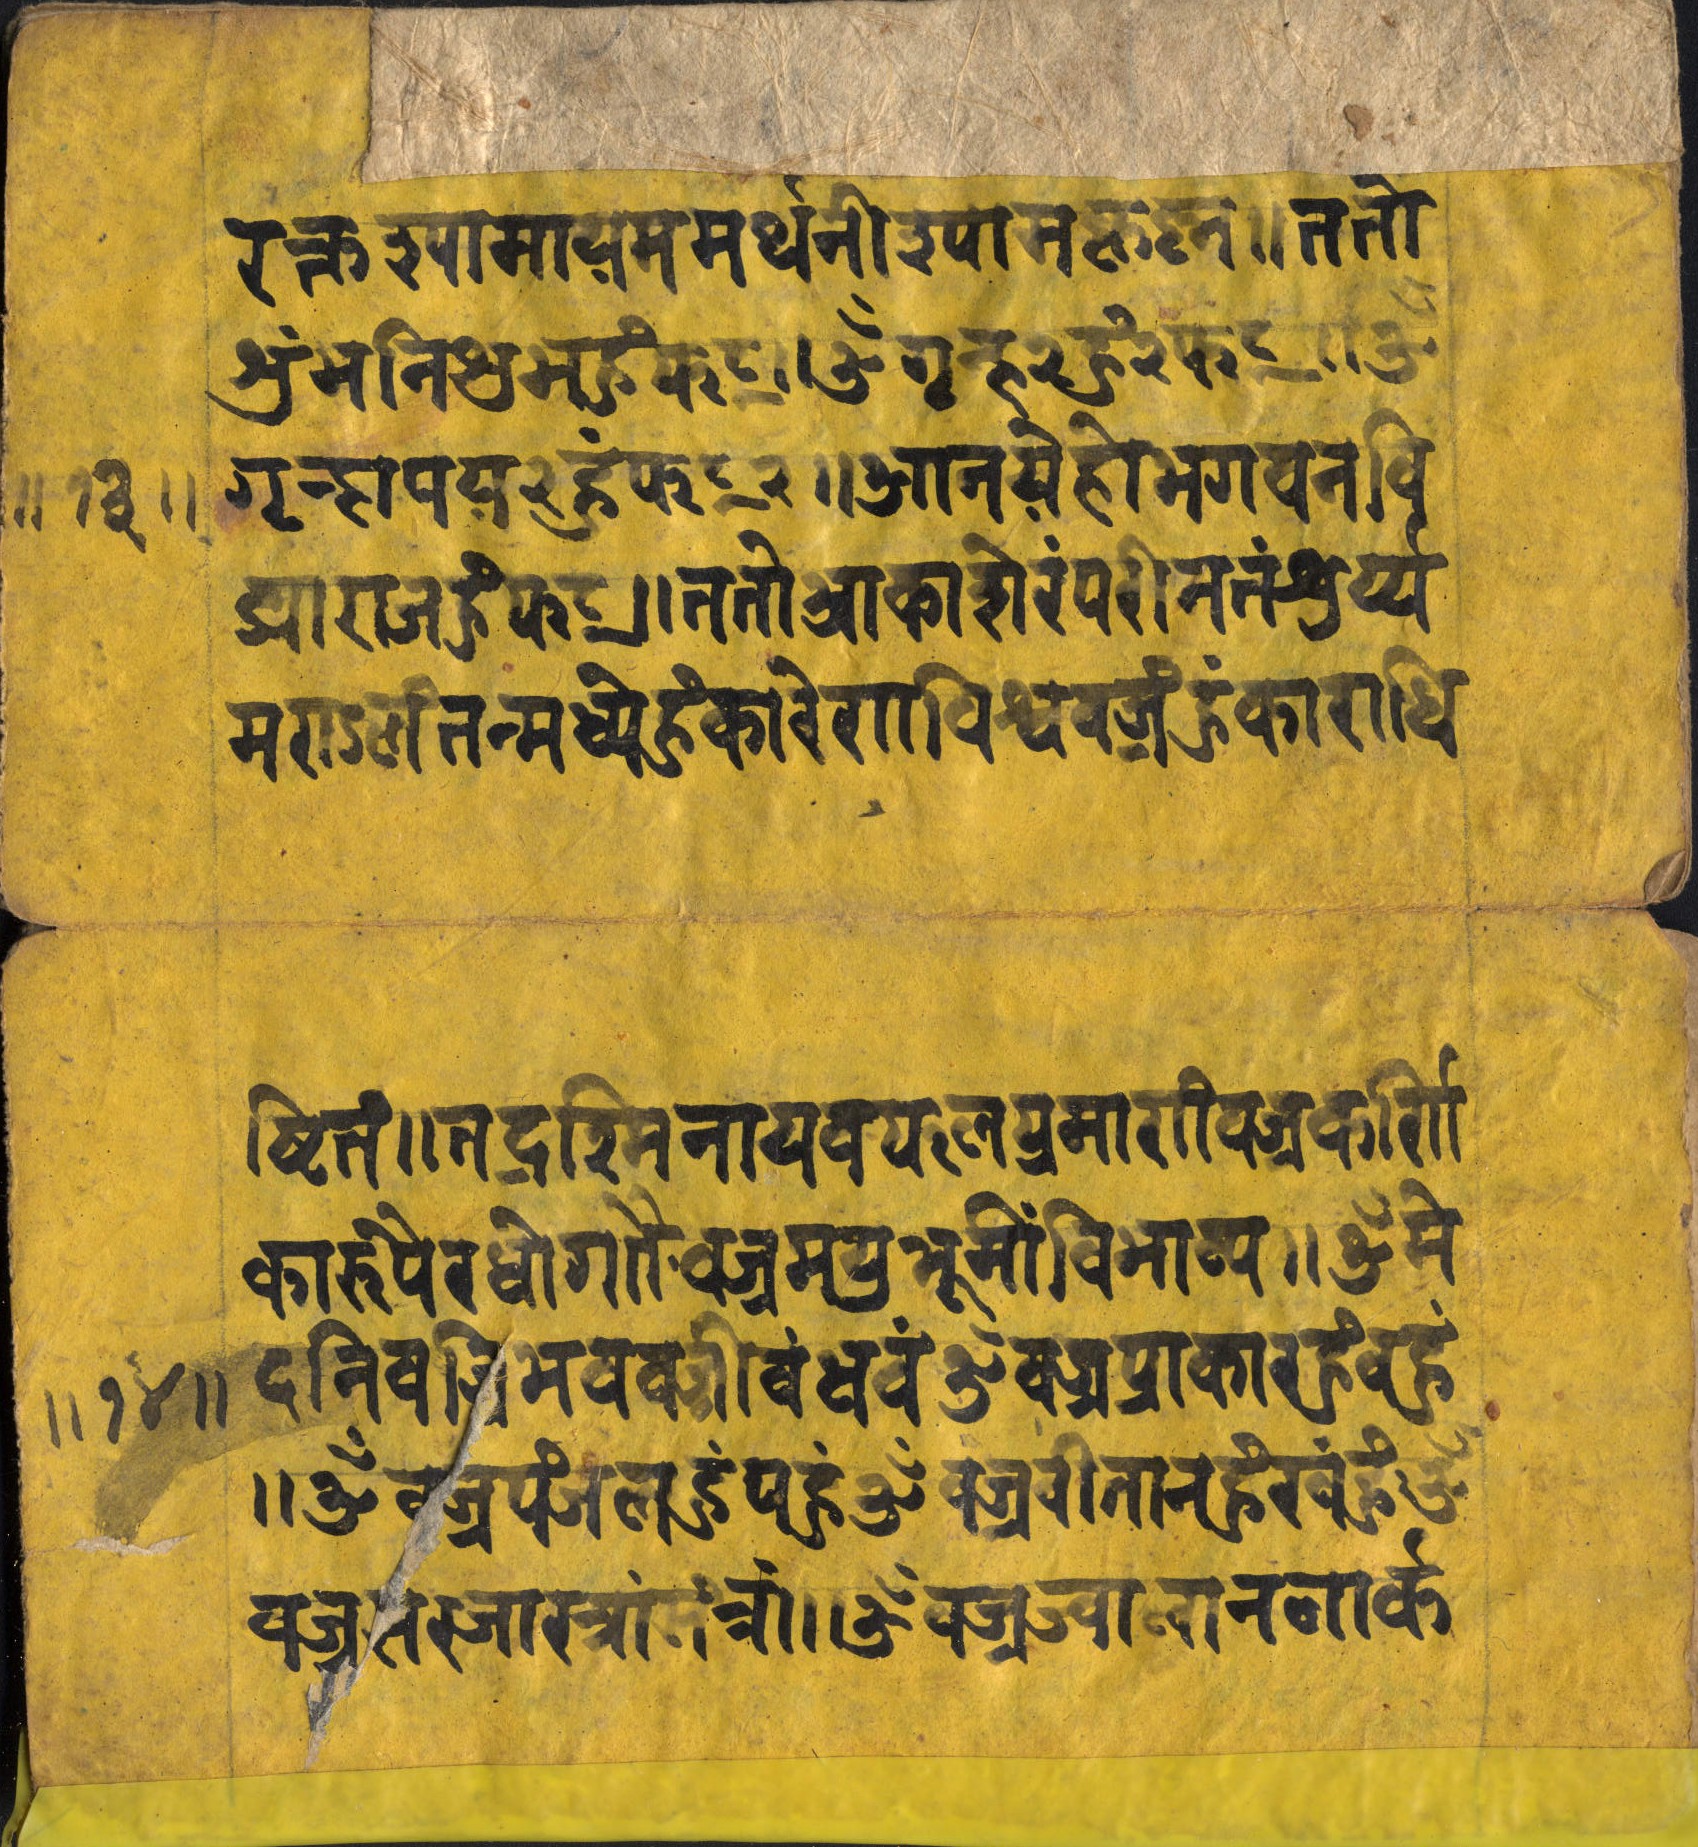 रक्त श्पामायम मर्थनी श्पाम नतन ॥ ततो
शुंभ निशुभ हुंफट् ॥ ॐ गृन्ह २ हुं २ फट् ॥ ॐ
॥ १३ ॥ गृन्हापय २ हुंफट् २ ॥ आनय हो भगवन वि
द्याराज हुंफट् ॥ ततो आकाशे रंपरीनतं शुर्य्य
मराडलं तन्मध्ये हुंकारेण विश्ववज्रं हुंकाराधि
ष्टितं ॥ तद्रश्मिनायवपलप्रमाणीवज्रकर्णि
कारुपेरधोगतौ वज्रमयु भूमीं विभाव्य ॥ ॐ मे
॥ १४ ॥ दनिवज्रिभववज्रीबंधवं ॐ वज्रप्राकारहुंवहुं
॥ ॐ वज्रपंजलहुंपहुं ॐ वज्रवीतानहुंखंहुं ॐ
वज्रसरजासत्रांतंत्रां ॥ ॐ वज्रज्वालानलार्क